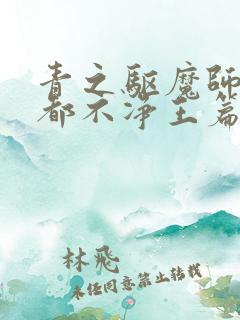 青之驱魔師
都不淨王篇
林飛
未経同意禁止转载